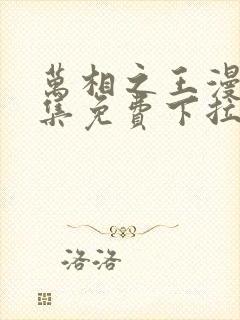 萬相之王漫
集免費下拉
洛洛